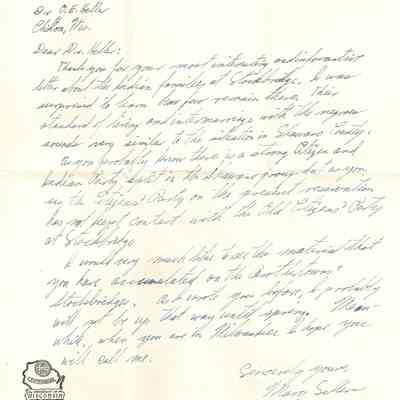 Dr. O. E. Heller
Chilton, Wis.
Dear Dr. Heller:
Thank you for your most interesting and informative
letter about the Indian families at Stockbridge. I was
surprised to learn how few remain there. Their
standard of living and intermarriage with the negroes
sounds very similar to the situation in Shawano County.
As you probably know there is a strong Citizen and
Indian Party split in the Shawano group but as you
say the Citizens' Party on the present reservation
has not kept contact with the Old Citizens' Party
at Stockbridge.
I would very much like to see the material that
you have accumulated on the
Stockbridges. As I wrote you before, I probably
will not be up that way until spring. Mean-
while, when you are in Milwaukee I hope you
will call me.
Sincerely yours,
Mary
WISCONSIN